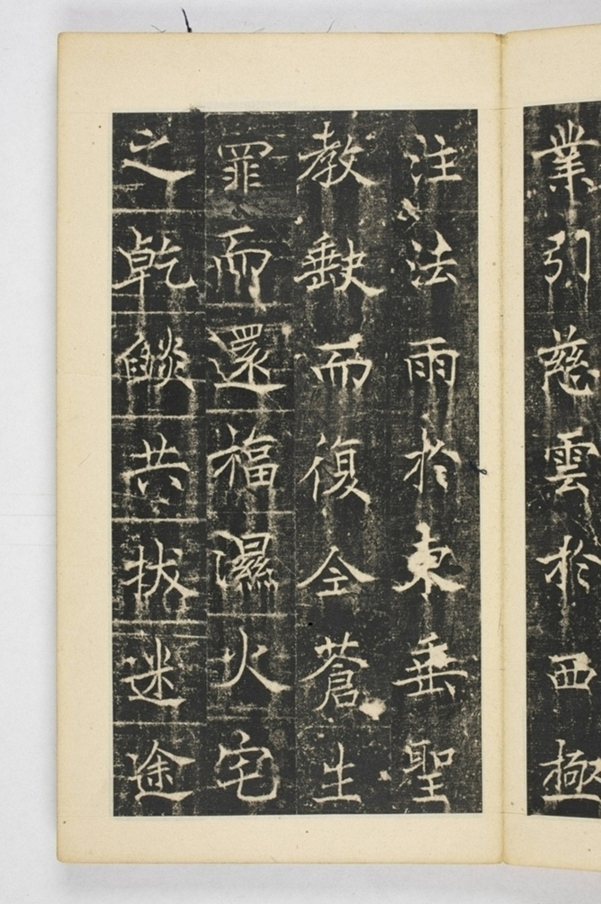 業引慈雲於西極
注法雨於東垂聖
教缺而復全蒼生
罪而還福濕火宅
之乾燄共拔迷途